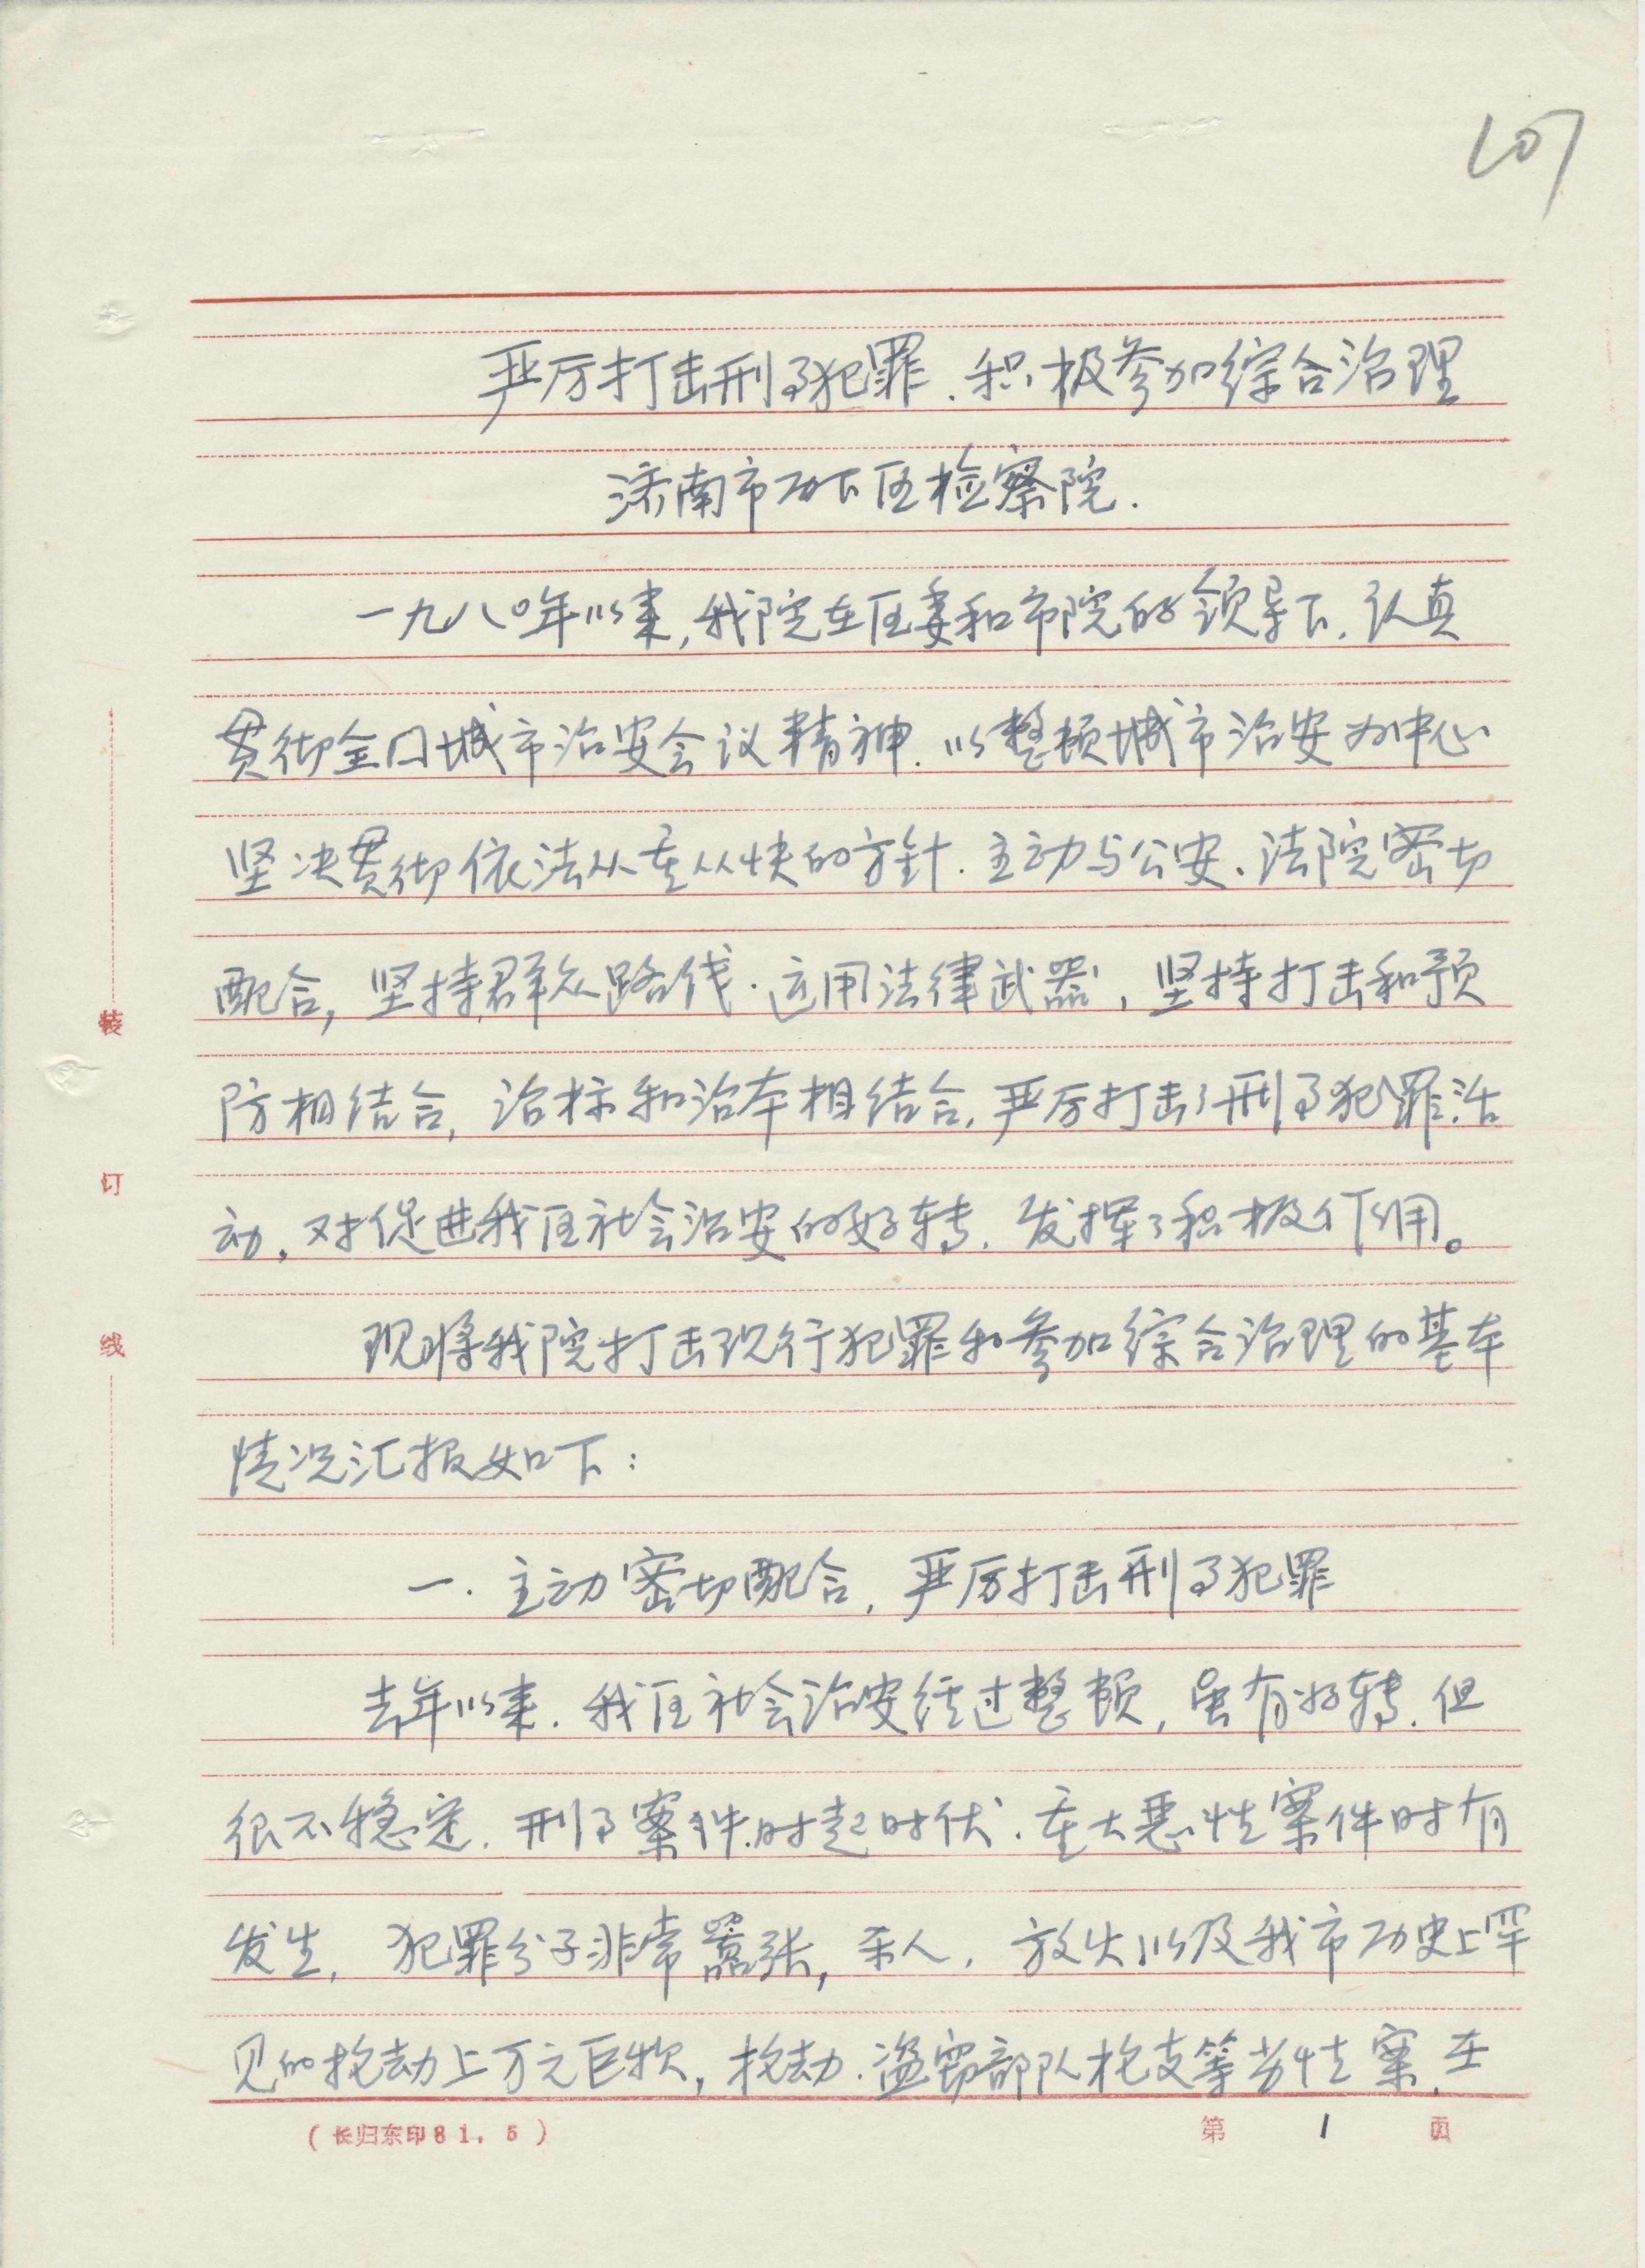 107
严厉打击刑事犯罪.积极参加综合治理
济南市历下区检察院.
一九八〇年以来,我院在区委和市院的领导下.认真
贯彻全国城市治安会议精神.以整顿城市治安为中心
坚决贯彻依法从重从快的方针.主动与公安、法院密切
配合,坚持群众路线.运用法律武器,坚持打击和预
防相结合,治标和治本相结合.严厉打击了刑事犯罪活
动.对促进我区社会治安的好转.发挥了积极作用。
现将我院打击现行犯罪和参加综合治理的基本
情况汇报如下:
一.主动密切配合,严厉打击刑事犯罪
去年以来.我区社会治安经过整顿,虽有好转.但
很不稳定.刑事案件时起时伏.重大恶性案件时有
发生,犯罪分子非常嚣张,杀人.放火以及我市历史上罕
见的抢劫上万元巨款,抢劫.盗窃部队枪支等性案.在
装
订
线
(长归东印81.5)
第 1 页